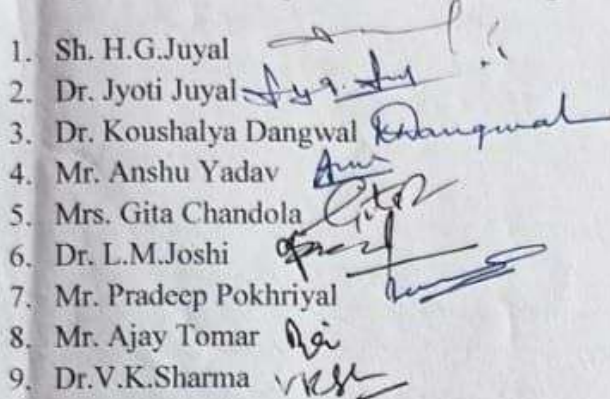 1. Sh. H.G.Juyal
2. Dr. Jyoti Juyal
3. Dr. Koushalya Dangwal KDangwal
4. Mr. Anshu Yadav
5. Mrs. Gita Chandola Gita
6. Dr. L.M.Joshi
7. Mr. Pradeep Pokhriyal
8. Mr. Ajay Tomar
9. Dr.V.K.Sharma